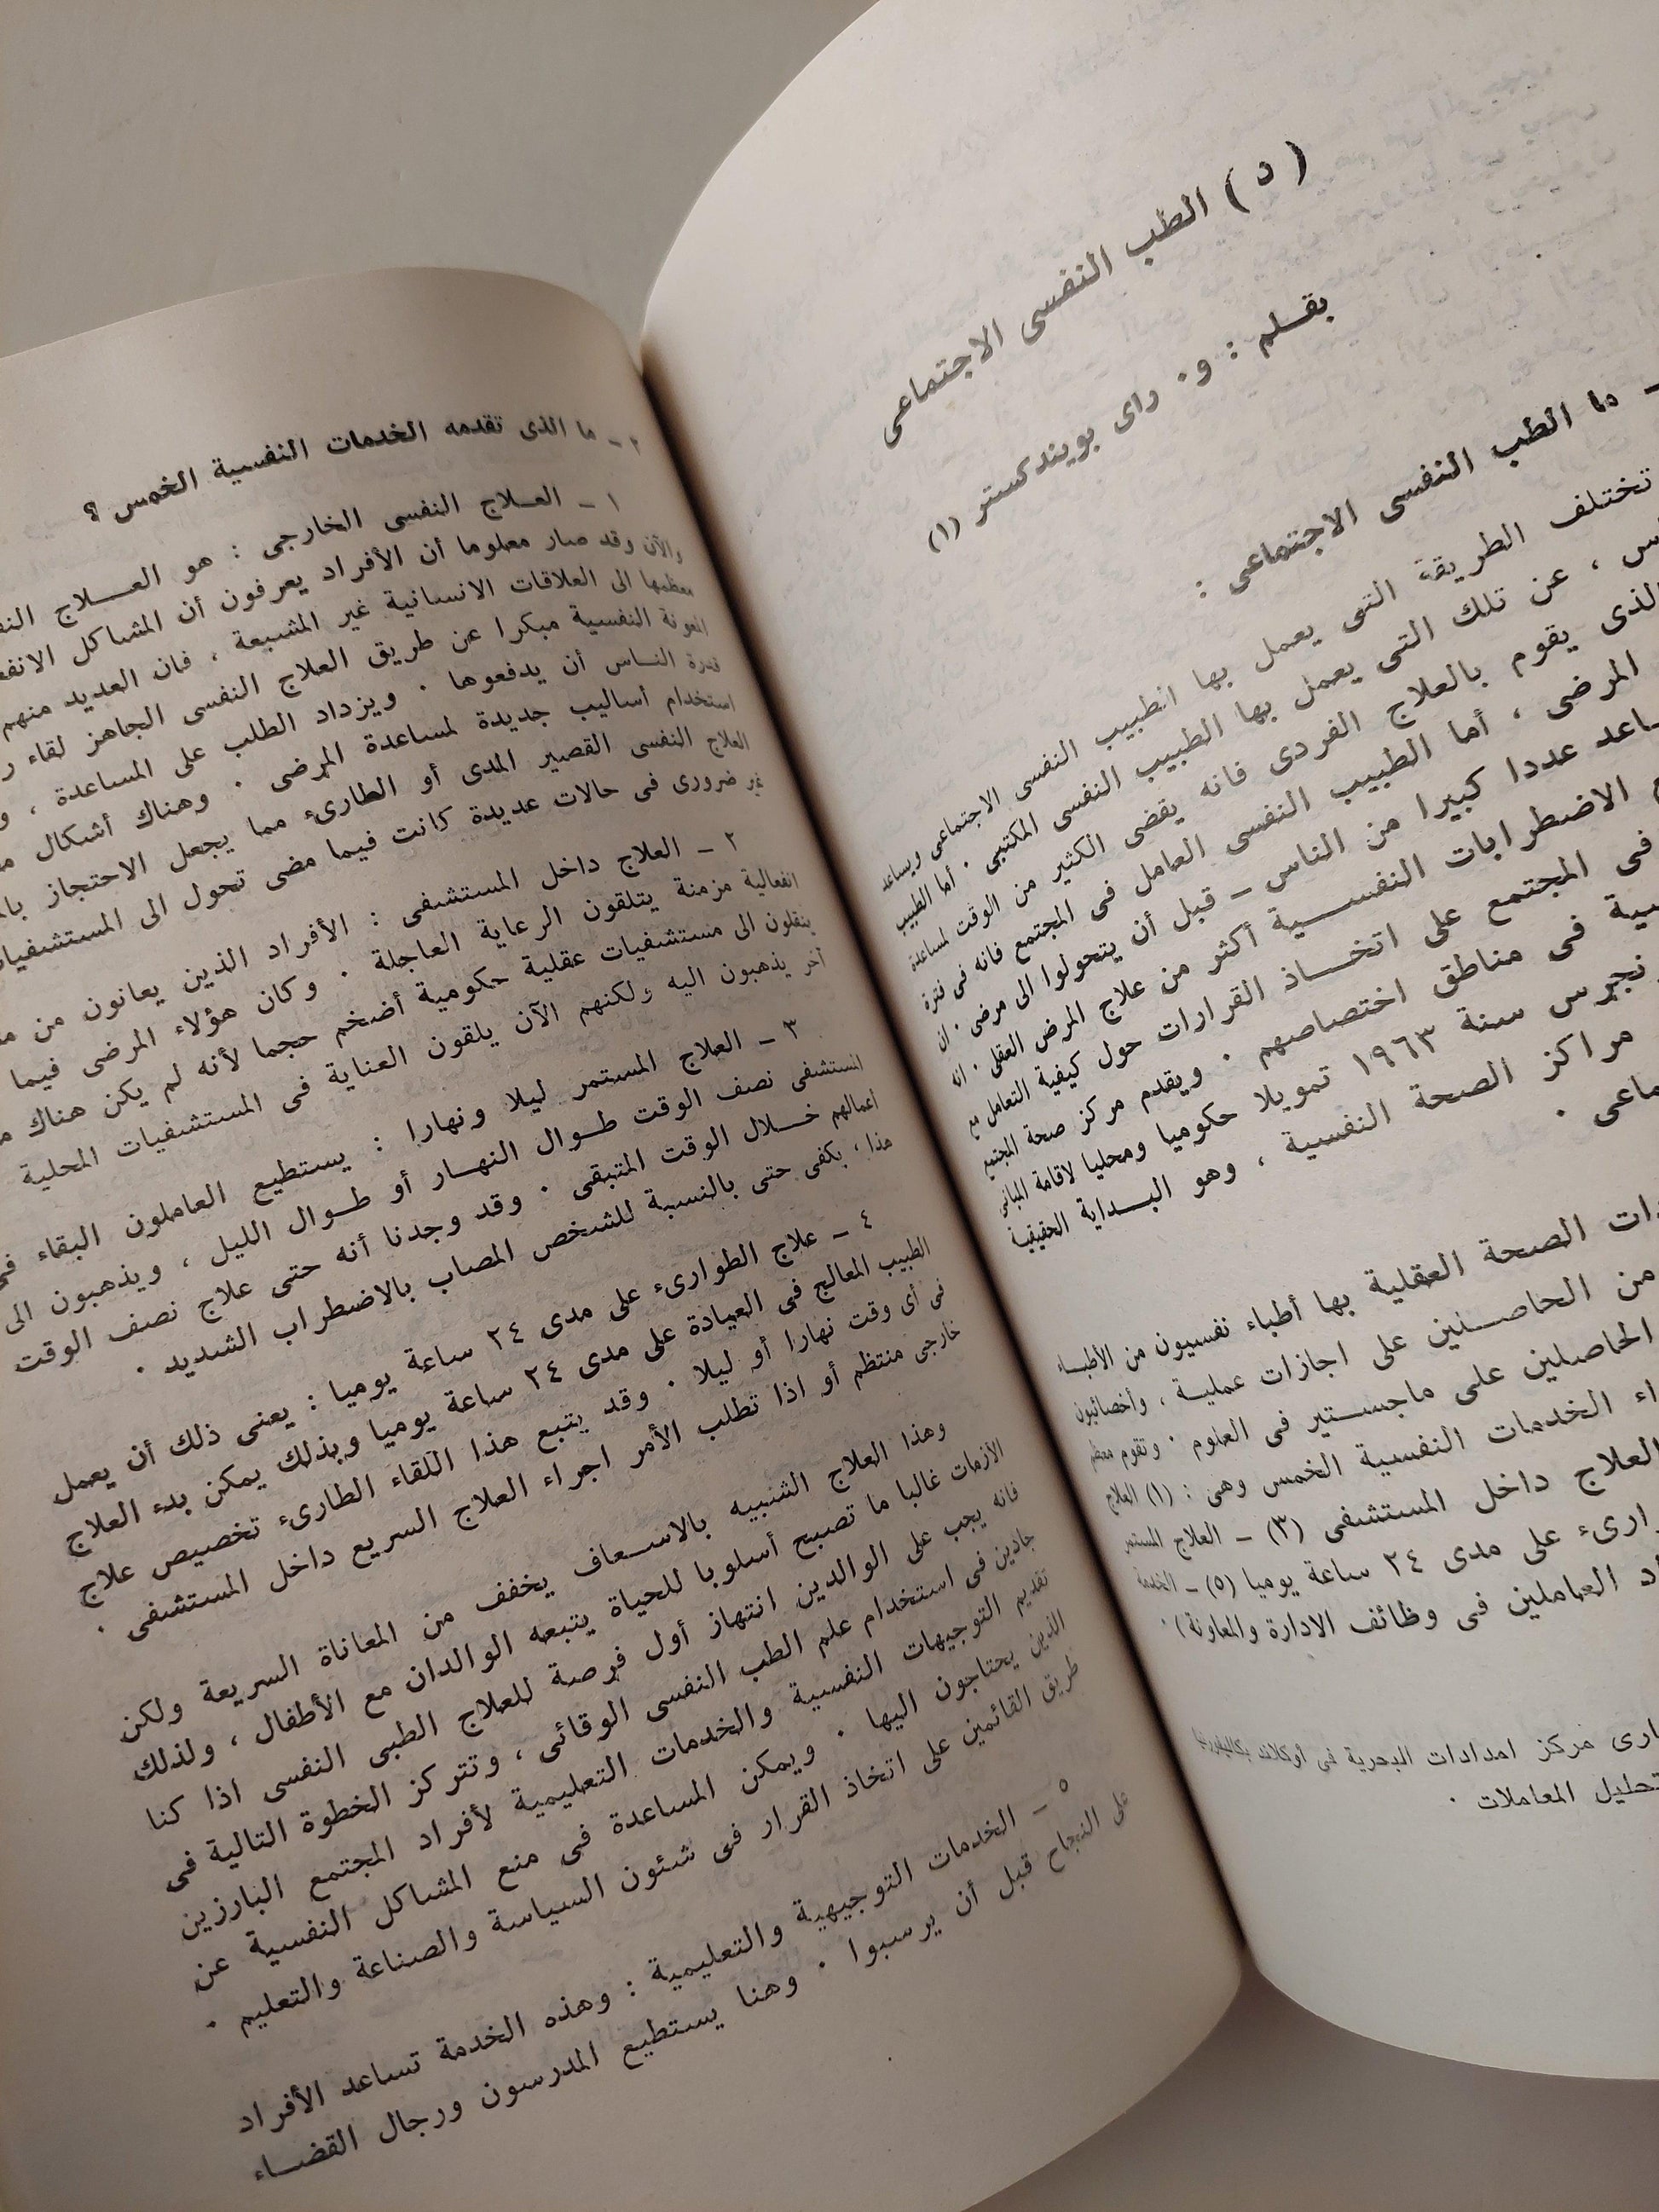 (٥) الطب النفسى الاجتماعى
بقـلم : و٠ راى بويندكستر (١)
ـ ما الطب النفسى الاجتماعى :
تختلف الطريقة التى يعمل بها الطبيب النفسى الاجتماعى ويساعد
، عن تلك التى يعمل بها الطبيب النفسى المكتبى ٠ أما الطبيب
الذى يقوم بالعلاج الفردى فانه يقضى الكثير من الوقت لمساعدة
المرضى ، أما الطبيب النفسى العامل فى المجتمع فانه فى فترة
عددا كبيرا من الناس ـ قبل أن يتحولوا الى مرضى ٠ ان
الاضطرابات النفسـية أكثر من علاج المرض العقلى ٠ انه
فى المجتمع على اتخـاذ القرارات حول كيفية التعامل مع
فى مناطق اختصاصهم ٠ ويقدم مركز صحة المجتمع
سنة ١٩٦٣ تمويلا حكوميا ومحليا لاقامة المبانى
مراكز الصحة النفسية ، وهو البـداية الحقيقية
٠
الصحة العقلية بها أطباء نفسيون من الأطبـاء
من الحاصـلين على اجازات عمليـة ، وأخصائيون
الحاصلين على ماجسـتير فى العلوم ٠ وتقوم معظم
الخدمات النفسية الخمس وهى : (١) العلاج
العلاج داخل المستشفى (٣) ـ العلاج المستمر
على مدى ٢٤ ساعة يوميا (٥) ـ الخدمة
العاملين فى وظائف الادارة والمعاونة) ٠
مركز امدادات البحرية فى أوكلاند بكاليفورنيا
تحليل المعاملات ٠
ـ ما الذى تقدمه الخدمات النفسية الخمس ؟
١ ـ العـلاج النفسى الخارجى : هو العـــلاج
والآن وقد صار معلوما أن الأفراد يعرفون أن المشاكل
معظمها الى العلاقات الانسانية غير المشبعة ، فان العديد منهم
المعونة النفسية مبكرا عن طريق العلاج النفسى الجاهز لقاء
قدرة النـاس أن يدفعوها ٠ ويزداد الطلب على المساعدة ،
استخدام أساليب جديدة لمساعدة المرضى ٠ وهناك أشكال
العلاج النفسى القصير المدى أو الطارىء مما يجعل الاحتجاز
غير ضرورى فى حالات عديدة كانت فيما مضى تحول الى المستشفيات
٢ ـ العلاج داخل المستشفى : الأفراد الذين يعانون من
انفعالية مزمنة يتلقون الرعاية العاجلة ٠ وكان هؤلاء المرضى فيما
ينقلون الى مستشفيات عقلية حكومية أضخم حجما لأنه لم يكن هناك
آخر يذهبون اليه ولكنهم الآن يلقون العناية فى المستشفيات المحلية
٣ ـ العلاج المستمر ليلا ونهارا : يستطيع العاملون البقاء فى
المستشفى نصف الوقت طـوال النهـار أو طـوال الليل ، ويذهبون الى
أعمالهم خـــلال الوقت المتبقى ٠ وقد وجدنا أنه حتى علاج نصف الوقت
هذا ، يكفى حتى بالنسبة للشخص المصاب بالاضطراب الشديد ٠
٤ ـ علاج الطوارىء على مدى ٢٤ ساعة يوميا : يعنى ذلك أن يعمل
الطبيب المعالج فى العيادة على مدى ٢٤ ساعة يوميا وبذلك يمكن بدء العلاج
فى أى وقت نهارا أو ليلا ٠ وقد يتبع هذا اللقاء الطارىء تخصيص علاج
خارجى منتظم أو اذا تطلب الأمر اجراء العلاج السريع داخل المستشفى ٠
وهذا العلاج الشبيه بالاسـعاف يخفف من المعاناة السريعة ولكن
الأزمات غالبا ما تصبح أسلوبا للحياة يتبعه الوالدان مع الأطفال ، ولذلك
فانه يجب على الوالدين انتهاز أول فرصة للعلاج الطبى النفسى اذا كنا
جادين فى استخدام علم الطب النفسى الوقائى ، وتتركز الخطوة التالية فى
تقديم التوجيهات النفسية والخدمات التعليمية لأفراد المجتمع البارزين
الذين يحتاجون اليها ٠ ويمكن المساعدة فى منع المشاكل النفسية عن
طريق القائمين على اتخاذ القرار فى شئون السياسة والصناعة والتعليم ٠
٥ ـ الخدمات التوجيهية والتعليمية : وهذه الخدمة تساعد الأفراد
على النجاح قبل أن يرسبوا ٠ وهنا يستطيع المدرسون ورجال القضـاء